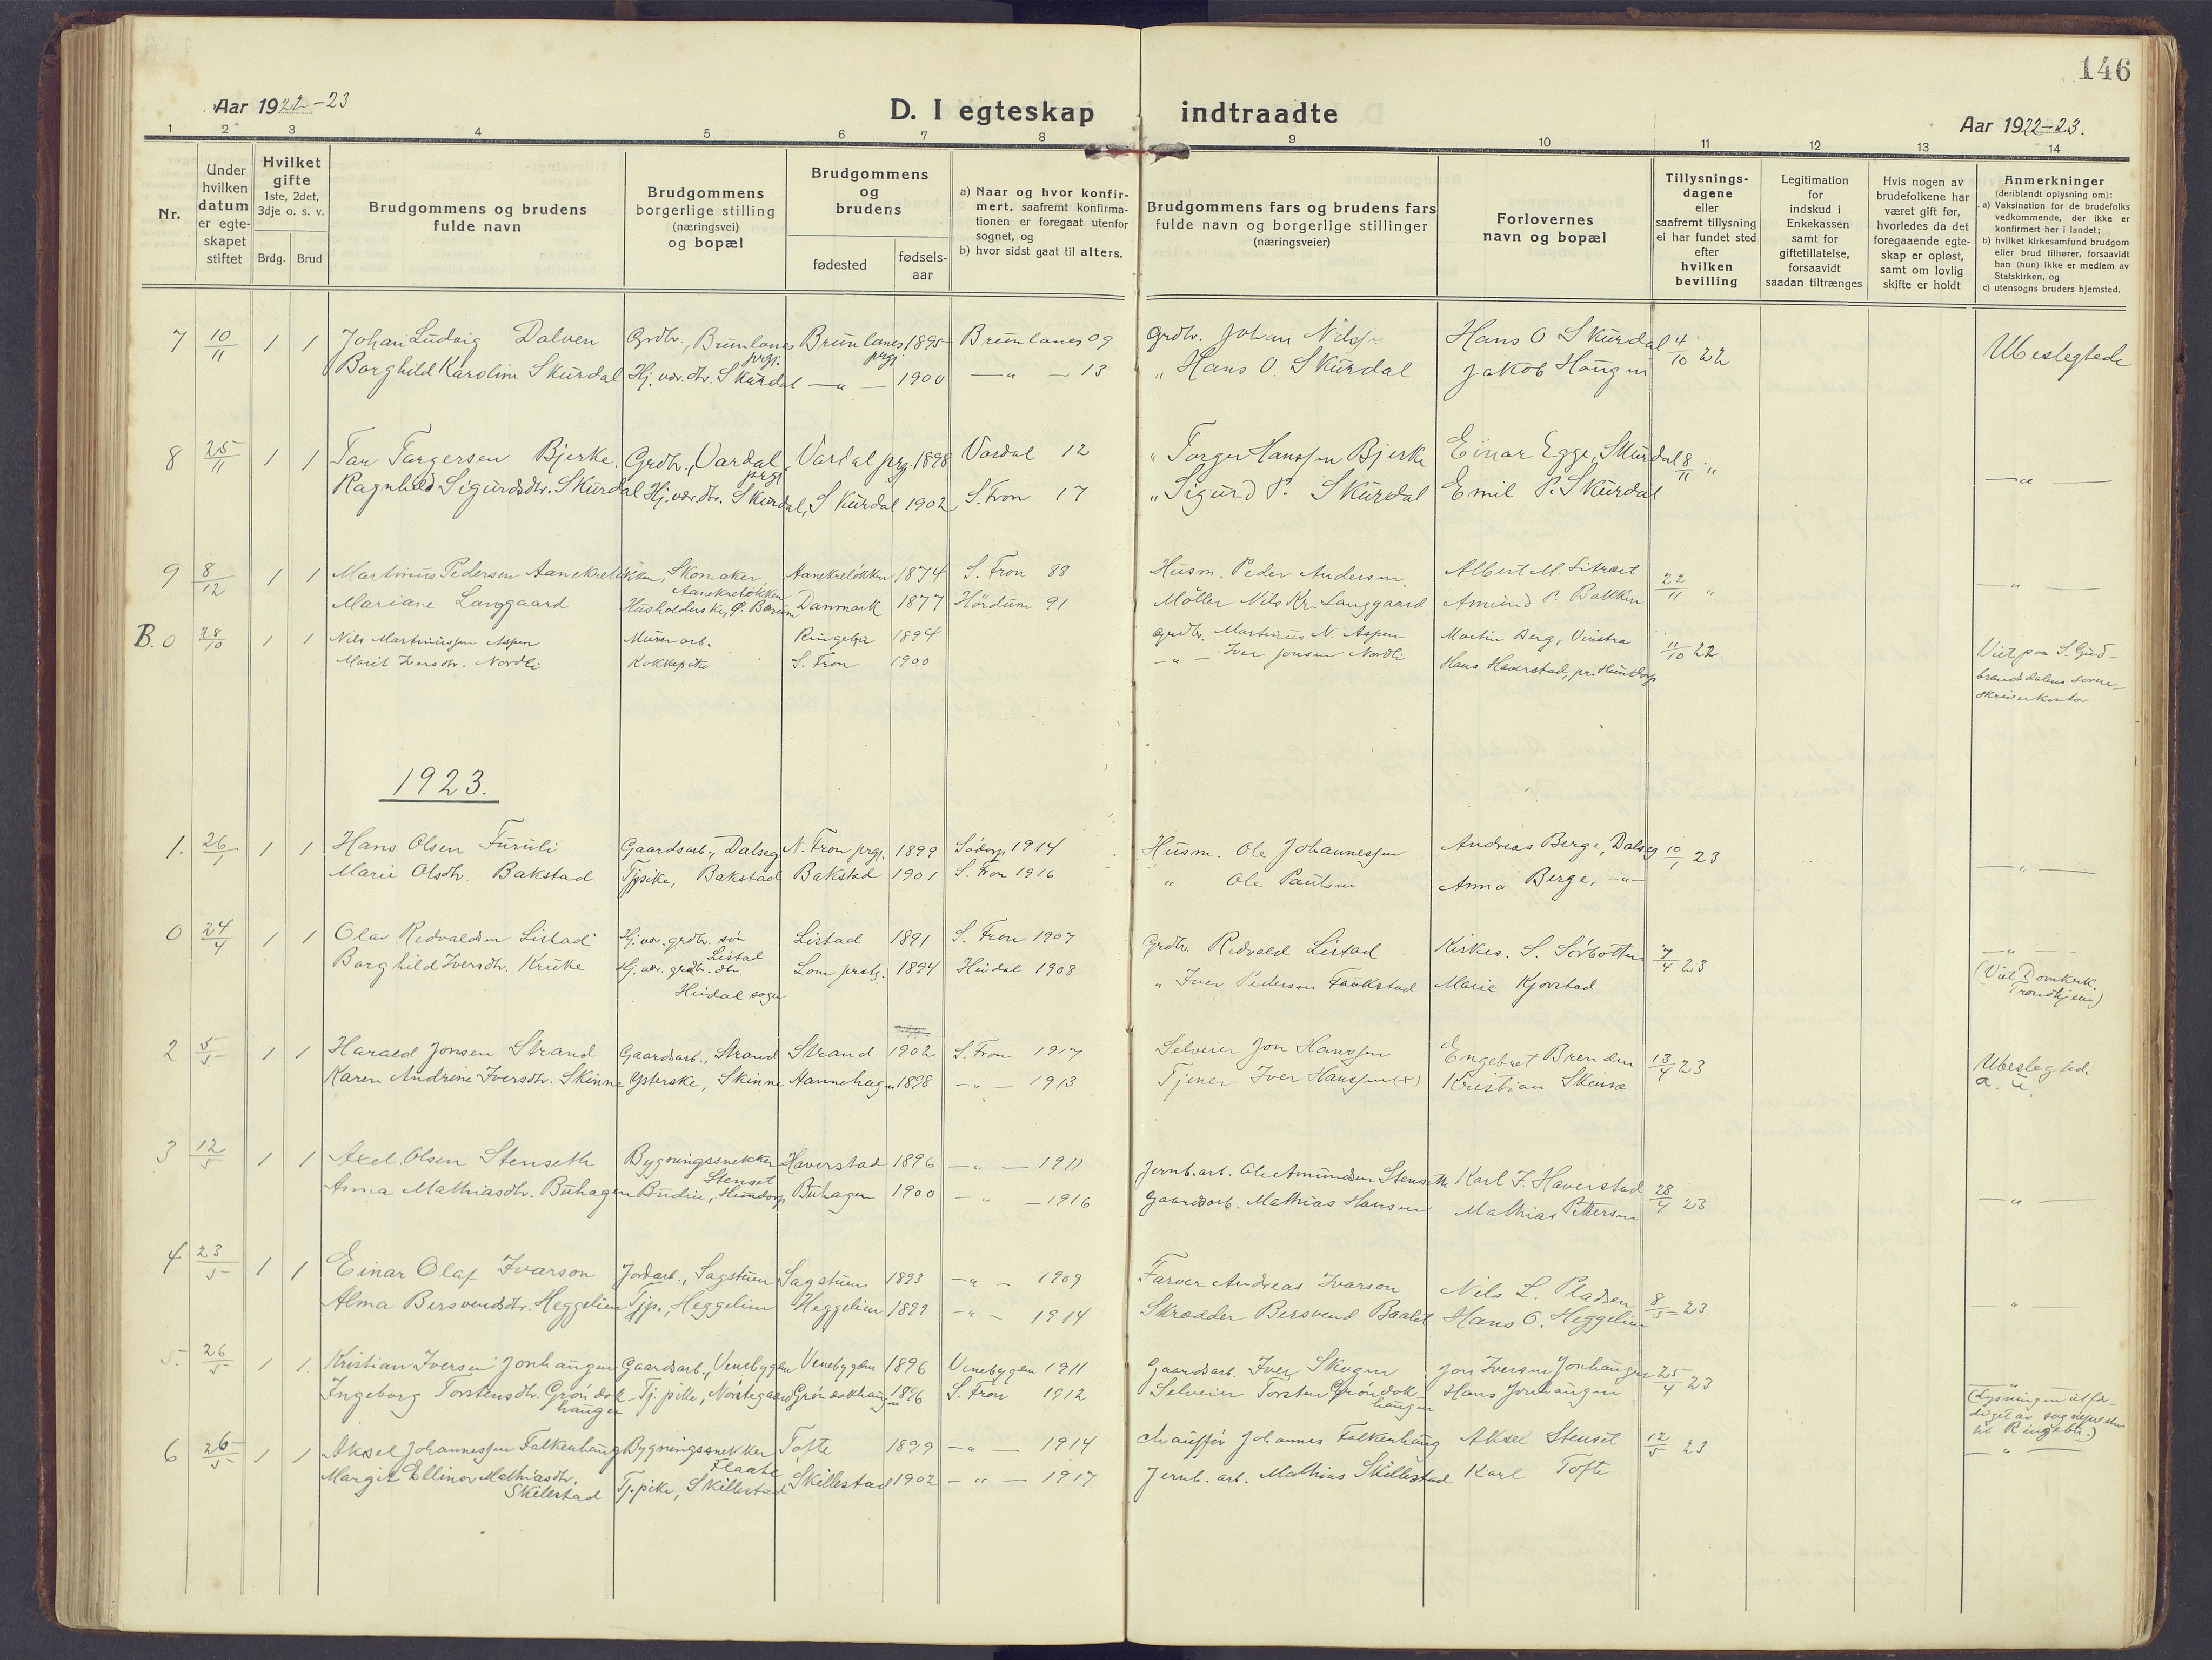 146
Aar 1922-23
D. I egteskap indtraadte
Aar 1922-23.
1 2 3 4 5 6 7 8 9 10 11 12 13 14
Nr.
Under hvilken datum er egte-skapet stiftet
Hvilket gifte 1ste, 2det, 3dje o. s. v.
Brdg. Brud
Brudgommens og brudens fulde navn
Brudgommens borgerlige stilling (næringsvei) og bopæl
Brudgommens og brudens
fødested
fødsels-aar
a) Naar og hvor konfir-mert, saafremt konfirma-tionen er foregaat utenfor sognet, og
b) hvor sidst gaat til alters.
Brudgommens fars og brudens fars fulde navn og borgerlige stillinger (næringsveier)
Forlovernes navn og bopæl
Tillysnings-dagene eller saafremt tillysning ei har fundet sted efter hvilken bevilling
Legitimation for indskud i Enkekassen samt for giftetillatelse, forsaavidt saadan tiltrænges
Hvis nogen av brudefolkene har været gift før, hvorledes da det foregaaende egte-skap er opløst, samt om lovlig skifte er holdt
Anmerkninger (deriblandt oplysning om):
a) Vaksination for de brudefolks vedkommende, der ikke er konfirmert her i landet;
b) hvilket kirkesamfund brudgom eller brud tilhører, forsaavidt han (hun) ikke er medlem av Statskirken, og
c) utensogns bruders hjemsted.
7 10/11 1 1 Johan Ludvig Dalven Grdbr., Brunlanes prgj. Brunlanes prgj. 1895 Brunlanes 09 Grdbr. Johan Nilssen Hans O Skurdal 4/10 22 Ubeslegtede
Borghild Karoline Skurdal Hj. vær. dtr. Skurdal —"— 1900 —"— 13 " Hans O. Skurdal Jakob Haugen
8 25/11 1 1 Tor Torgersen Bjerke Grdbr., Vardal prgj. Vardal prgj. 1898 Vardal 12 " Torger Hanssen Bjerke Einar Egge, Skurdal 8/11 " —"—
Ragnhild Sigurdsdtr. Skurdal Hj. vær. dtr. Skurdal, Skurdal 1902 S. Fron 17 " Sigurd P. Skurdal Emil P. Skurdal
9 8/12 1 1 Martinus Pedersen Aanekreløkken, Skomaker, Aanekreløkken Aanekreløkken 1874 S. Fron 88 Husm. Peder Andersen Albert M. 22/11 " —"—
Mariane Langgaard Husholderske, Ø. Bærum Danmark 1877 Hördum 91 Møller Nils Kr. Langgaard Amund P. Bakken
B. 0 28/10 1 1 Nils Martinussen Aspen Murerarb. Ringebu 1894 Grdbr. Martinus N. Aspen Martin Berg, Vinstra 11/10 22 Viet paa S. Gud-
Marit Iversdtr. Nordli Kokkepike S. Fron 1900 —"— Iver Jonsen Nordli Hans Haverstad, pr. Hundorp brandsdalens soren-
skriverkontor
1923.
1. 26/1 1 1 Hans Olsen Furuli Gaardsarb., Dalseg N. Fron prgj. 1899 Sødorp 1914 Husm. Ole Johannessen Andreas Berge, Dalseg 10/1 23 —"—
Marie Olsdtr. Bakstad Tjpike, Bakstad Bakstad 1901 S. Fron 1916 " Ole Paulsen Anna Berge, —"—
0 24/4 1 1 Olav Redvaldsen Listad Hj. vær. grdbr. søn Listad Listad 1891 S. Fron 1907 Grdbr. Redvald Listad Kirkes. S. Sörbotten 7/4 23 —"—
Borghild Iversdtr. Kruke Hj. vær. grdbr. dtr. Heidal sogn Lom prstj. 1894 Heidal 1908 " Iver Pedersen Faukstad Marie Kjorstad (Viet Domkirk. Trondhjem)
2 5/5 1 1 Harald Jonsen Strand Gaardsarb., Strand Strand 1902 S. Fron 1917 Selveier Jon Hanssen Engebret Brenden 13/4 23 Ubeslegtede
Karen Andrine Iversdtr. Skinne Ysterske, Skinne Hannehagen 1898 —"— 1913 Tjener Iver Hanssen (+) Kristian Skinne
3 12/5 1 1 Axel Olsen Stenseth Bygningssnekker Stenset Haverstad 1896 —"— 1911 Jernb. arb. Ole Amundsen Stenseth Karl F. Haverstad 28/4 23 —"—
Anna Mathiasdtr. Buhagen Budeie, Hundorp Buhagen 1900 —"— 1916 Gaardsarb. Mathias Hansen Mathias Pettersen
4 23/5 1 1 Einar Olaf Ivarson Jordarb., Sagstuen Sagstuen 1893 —"— 1909 Farver Andreas Ivarson Nils L. Pladsen 8/5 23 —"—
Alma Bersvendsdtr. Heggelien Tjp., Heggelien Heggelien 1899 —"— 1914 Skrædder Bersvend Baalit Hans O. Heggelien
5. 26/5 1 1 Kristian Iversen Jonhaugen Gaardsarb., Venebygden Venebygden 1896 Venebygden 1911 Gaardsarb. Iver Skogen Jon Iversen Jonhaugen 25/4 23 —"—
Ingeborg Torstensdtr. Gröndok- haugen Tj. pike, Nordregaard Gröndokhaugen 1896 S. Fron 1912 Selveier Torsten Gröndok- haugen Hans Jonhaugen (Lysningen utfær-
diget av sognepresten
til Ringebu.)
6 26/5 1 1 Aksel Johannessen Falkenhaug Bygningssnekker Flaate Tofte 1899 —"— 1914 Chauffør Johannes Falkenhaug Aksel Stenset 12/5 23 —"—
Margit Ellinor Mathiasdtr. Skillestad Tj. pike, Skillestad Skillestad 1902 —"— 1917 Jernb. arb. Mathias Skillestad Karl Tofte